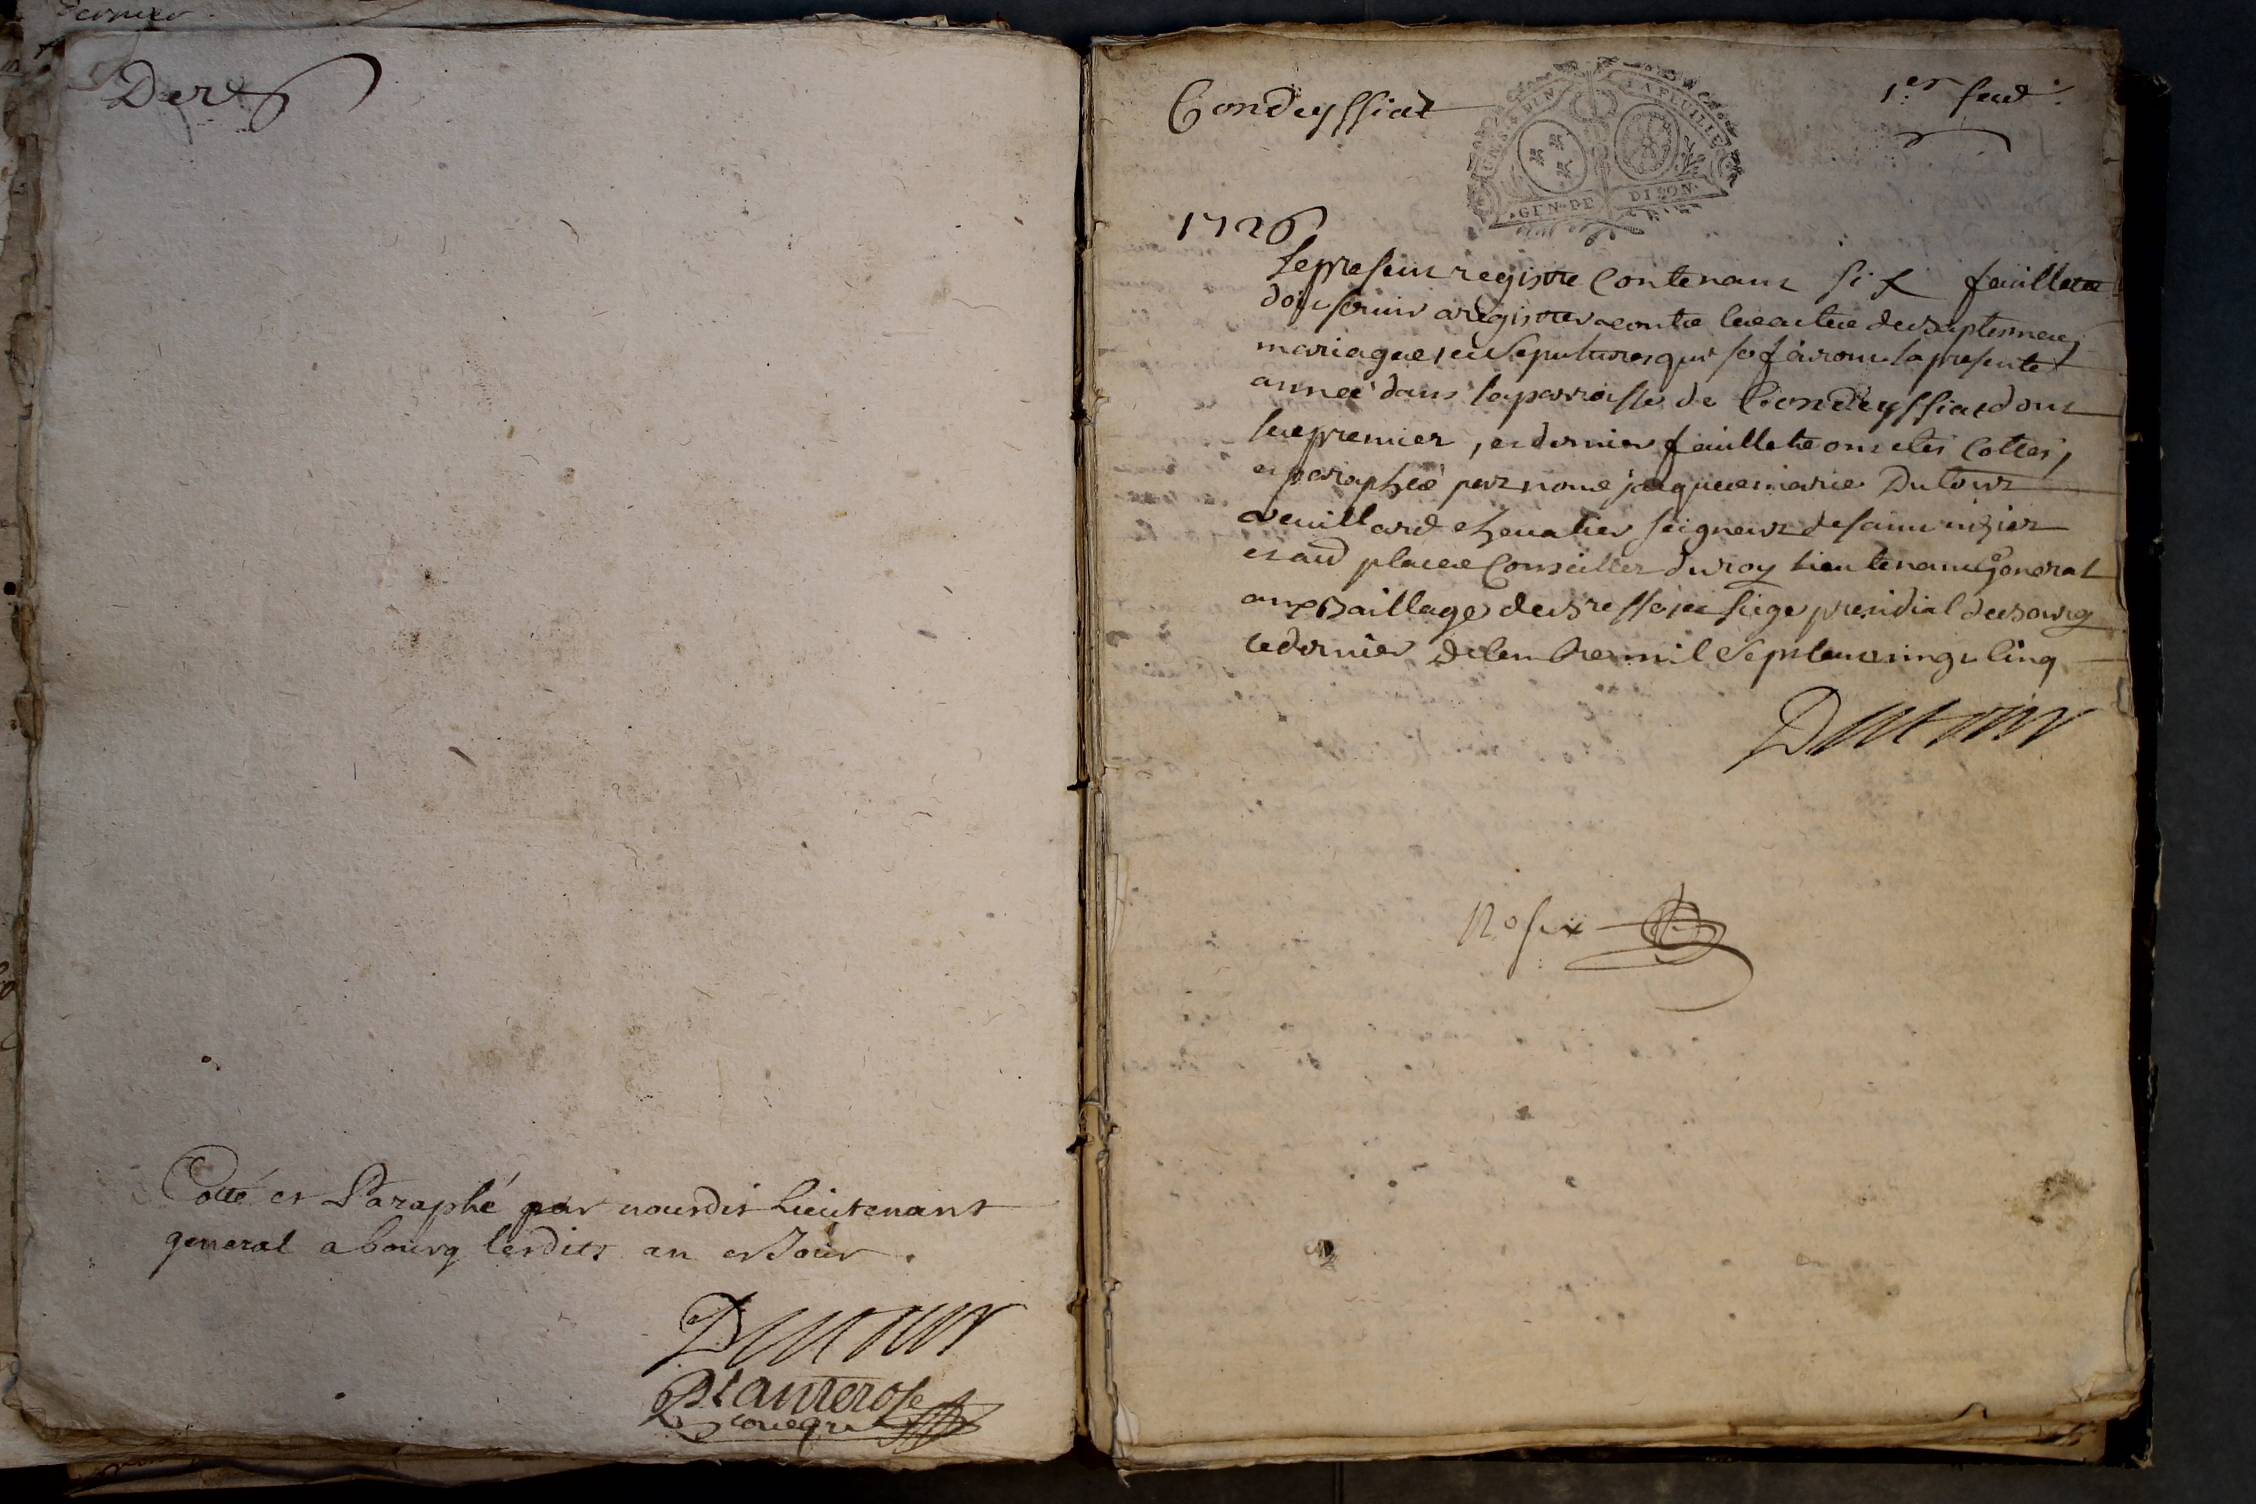 Der
Cotté et Paraphé par nousdit Lieutenant
general a bourg lesdits an et Jour.
Dutour
Planterose
Condeyssiat
1er feuil.
UN S. 8 DEN LA FEUILLE
GEN. DE DIJON
1726
Le present registre Contenant six feuillets
doit servir a registrer les actes de baptesmes,
mariages, et Sepultures qui se fairont la presente
année dans la parroisse de Condeyssiat dont
les premier, et dernier feuillets ont etés Cottés,
et paraphés par nous jacques marie Dutour
Veuillard chevalier seigneur de saint nizier
et aud places Conseiller du roy Lieutenant General
aux Baillage de bresse et siege presidial de bourg
le dernier decembre mil Sept cent vingt cinq
Dutour
No six